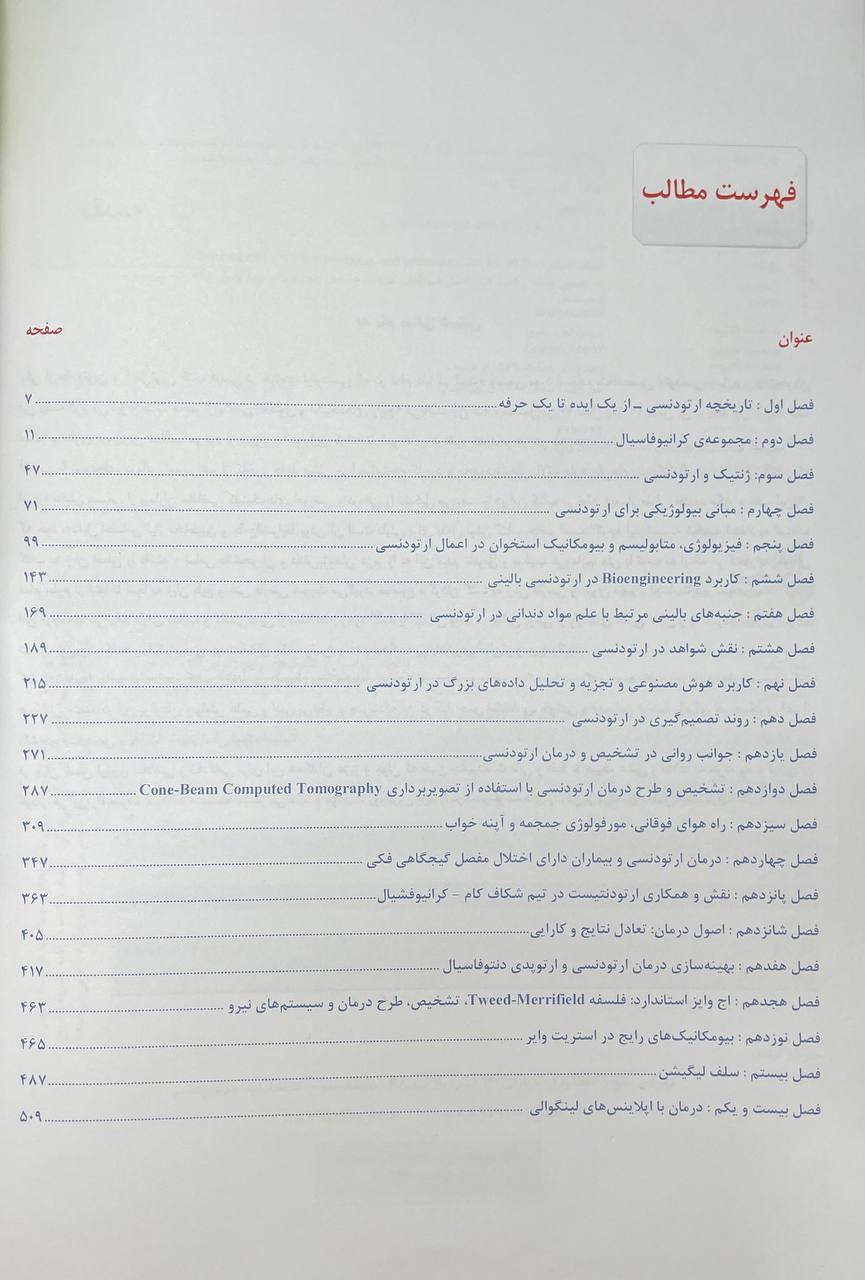 فهرست مطالب
عنوان صفحه
فصل اول : تاریخچه ارتودنسی ـ از یک ایده تا یک حرفه ........ ۷
فصل دوم : مجموعه‌ی کرانیوفاسیال ........ ۱۱
فصل سوم: ژنتیک و ارتودنسی ........ ۴۷
فصل چهارم : مبانی بیولوژیکی برای ارتودنسی ........ ۷۱
فصل پنجم : فیزیولوژی، متابولیسم و بیومکانیک استخوان در اعمال ارتودنسی ........ ۹۹
فصل ششم : کاربرد Bioengineering در ارتودنسی بالینی ........ ۱۴۳
فصل هفتم : جنبه‌های بالینی مرتبط با علم مواد دندانی در ارتودنسی ........ ۱۶۹
فصل هشتم : نقش شواهد در ارتودنسی ........ ۱۸۹
فصل نهم : کاربرد هوش مصنوعی و تجزیه و تحلیل داده‌های بزرگ در ارتودنسی ........ ۲۱۵
فصل دهم : روند تصمیم‌گیری در ارتودنسی ........ ۲۲۷
فصل یازدهم : جوانب روانی در تشخیص و درمان ارتودنسی ........ ۲۷۱
فصل دوازدهم : تشخیص و طرح درمان ارتودنسی با استفاده از تصویربرداری Cone-Beam Computed Tomography ........ ۲۸۷
فصل سیزدهم : راه هوای فوقانی، مورفولوژی جمجمه و آپنه خواب ........ ۳۰۹
فصل چهاردهم : درمان ارتودنسی و بیماران دارای اختلال مفصل گیجگاهی فکی ........ ۳۴۷
فصل پانزدهم : نقش و همکاری ارتودنتیست در تیم شکاف کام - کرانیوفشیال ........ ۳۶۳
فصل شانزدهم : اصول درمان: تعادل نتایج و کارایی ........ ۴۰۵
فصل هفدهم : بهینه‌سازی درمان ارتودنسی و ارتوپدی دنتوفاسیال ........ ۴۱۷
فصل هجدهم : اج وایز استاندارد: فلسفه Tweed-Merrifield، تشخیص، طرح درمان و سیستم‌های نیرو ........ ۴۶۳
فصل نوزدهم : بیومکانیک‌های رایج در استریت وایر ........ ۴۶۵
فصل بیستم : سلف لیگیشن ........ ۴۸۷
فصل بیست و یکم : درمان با اپلاینس‌های لینگوالی ........ ۵۰۹